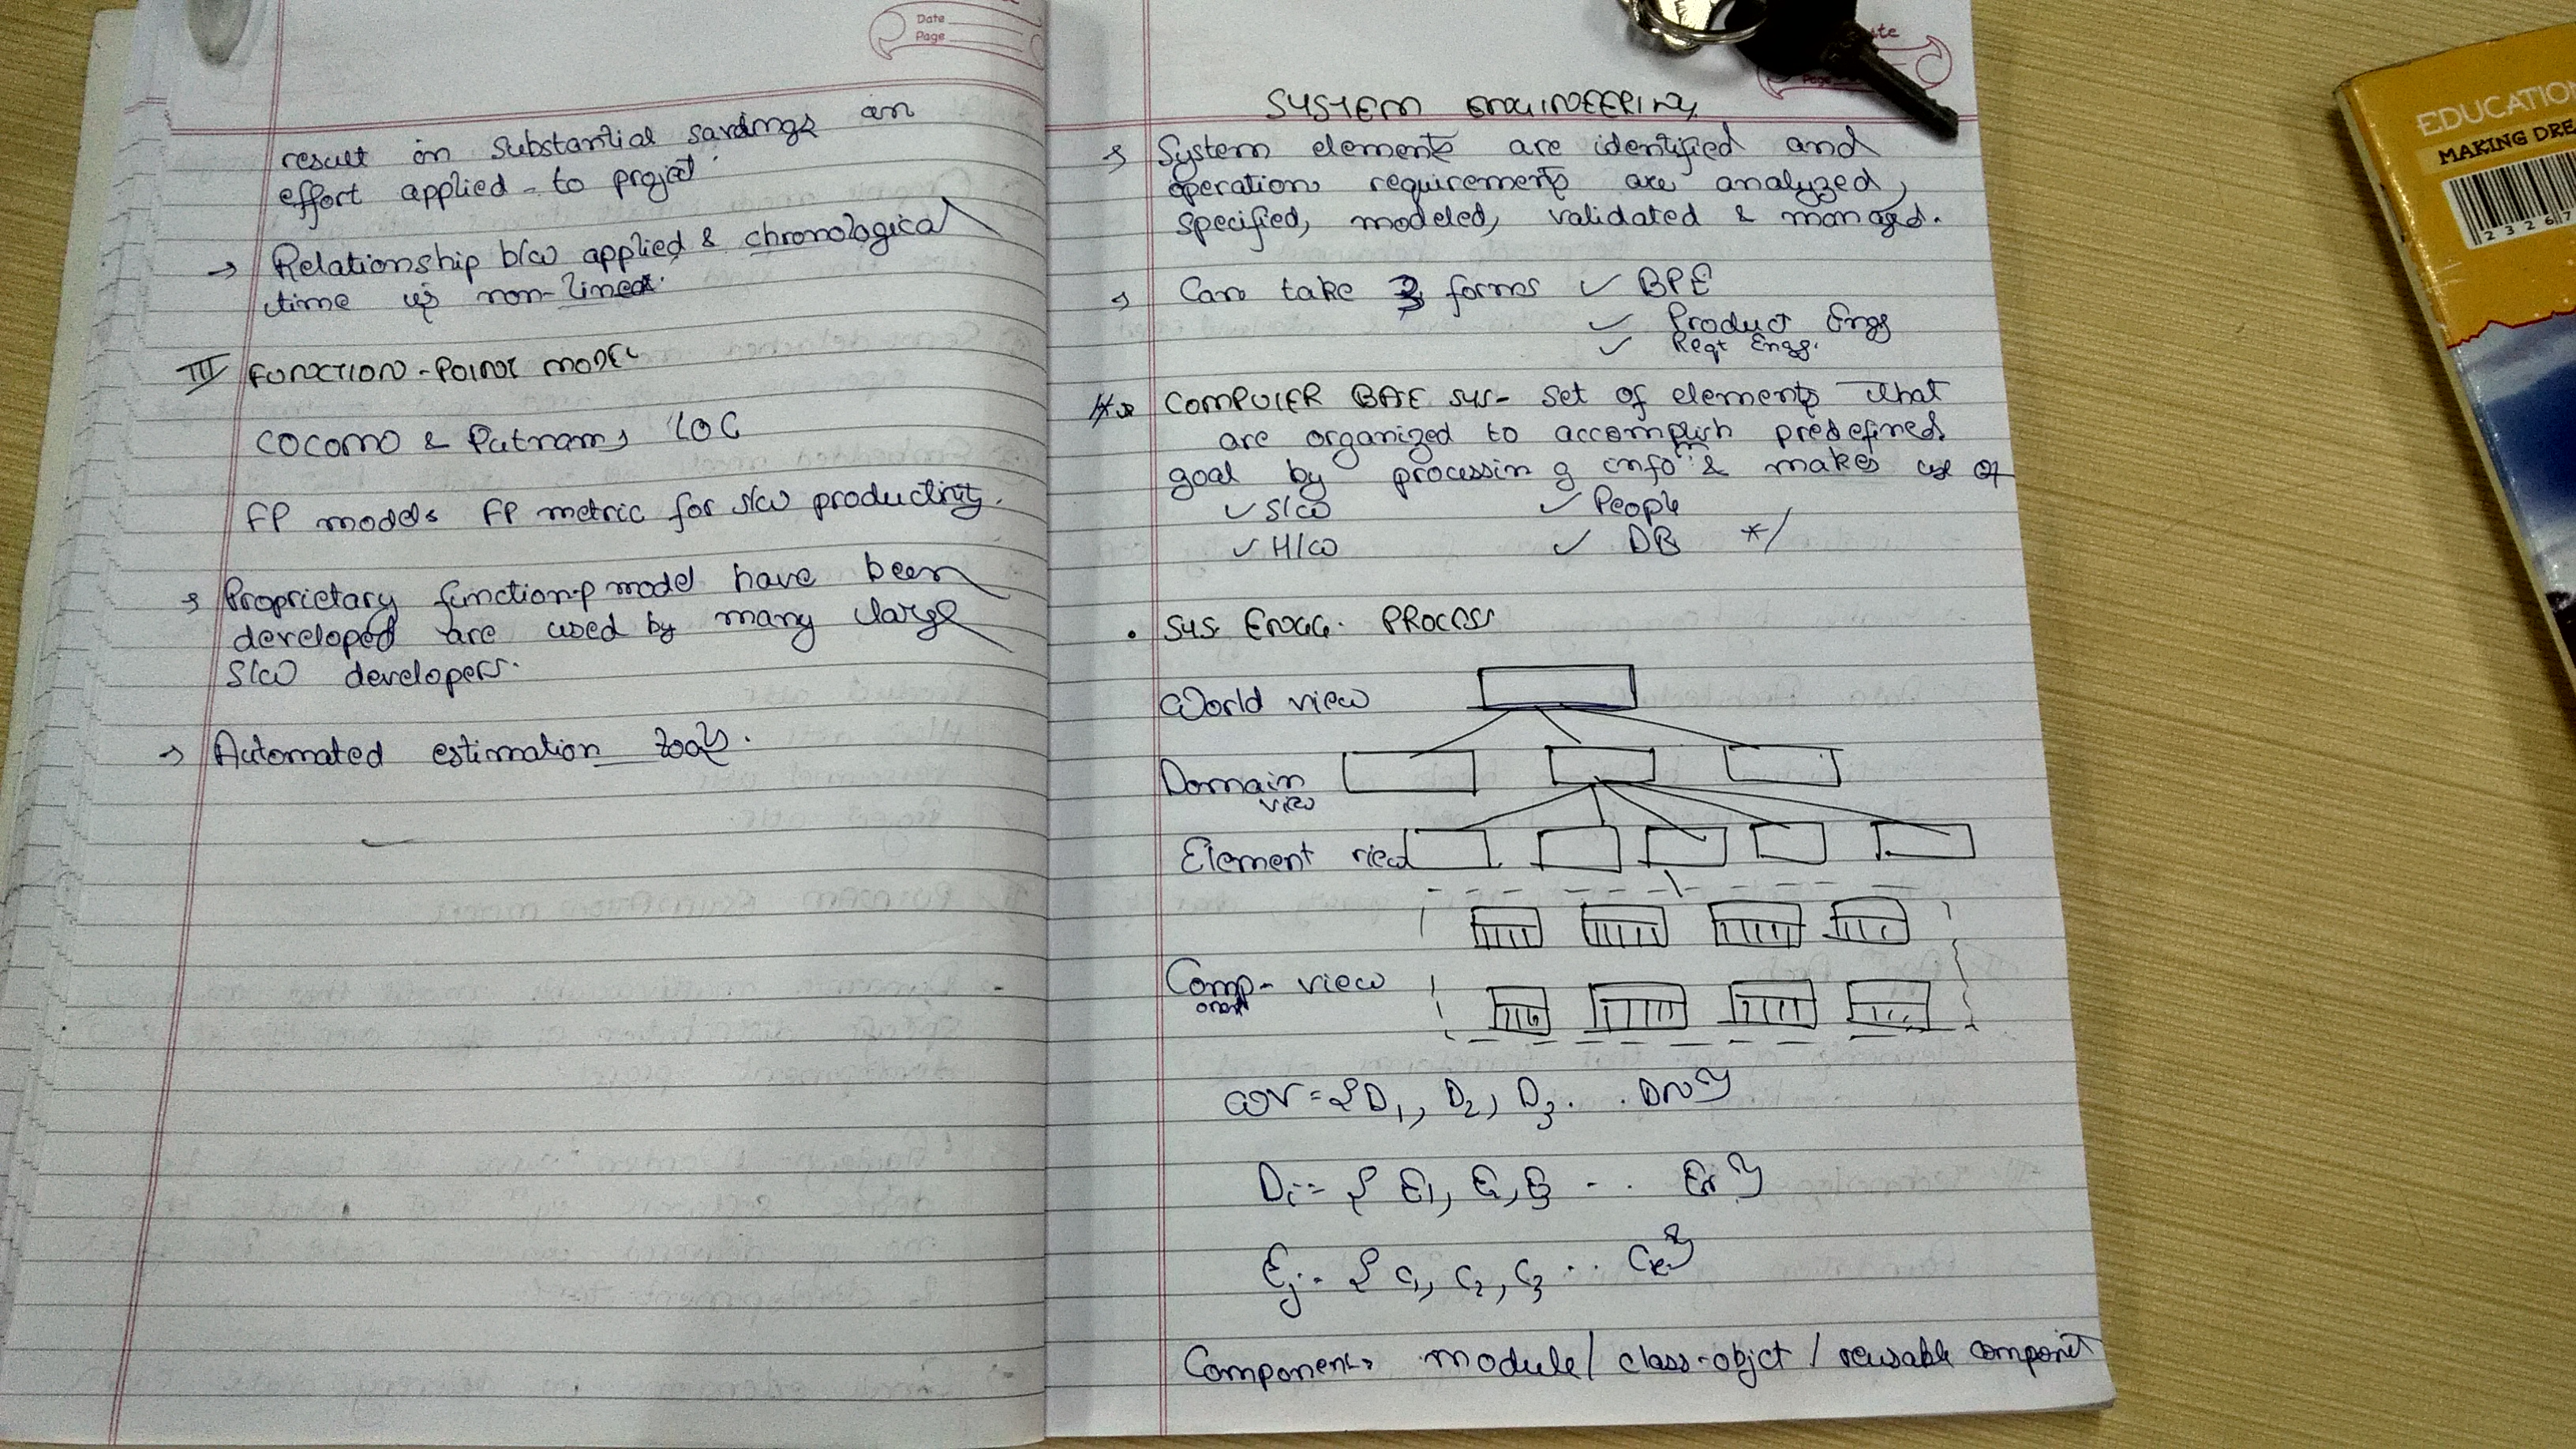 Date
Page
result in substantial savings in
effort applied to project.
→ Relationship b/w applied & chronological
time is non-linear.
III FUNCTION-POINT MODEL
COCOMO & Putnam, LOC
FP models FP metric for s/w productivity.
→ Proprietary function-p model have been
developed are used by many large
S/W developers.
→ Automated estimation tools.
SYSTEM ENGINEERING
→ System elements are identified and
operation requirements are analyzed,
specified, modeled, validated & managed.
→ Can take 3 forms ✓ BPE
✓ Product Engg
✓ Reqt Engg.
/* → COMPUTER BASE SYS- Set of elements that
are organized to accomplish predefined
goal by processing info & makes use of
✓ S/W ✓ People
✓ H/W ✓ DB */
• SYS. ENGG. PROCESS
World view
Domain
view
Element view
Comp- view
onent
WV = {D1, D2, D3. . . DN}
Di = { E1, E2, E3 - . . En }
Ej = { C1, C2, C3 . . . Ck }
Component → module / class-objct / reusable component
EDUCATIO
MAKING DRE
2 3 2 6 7